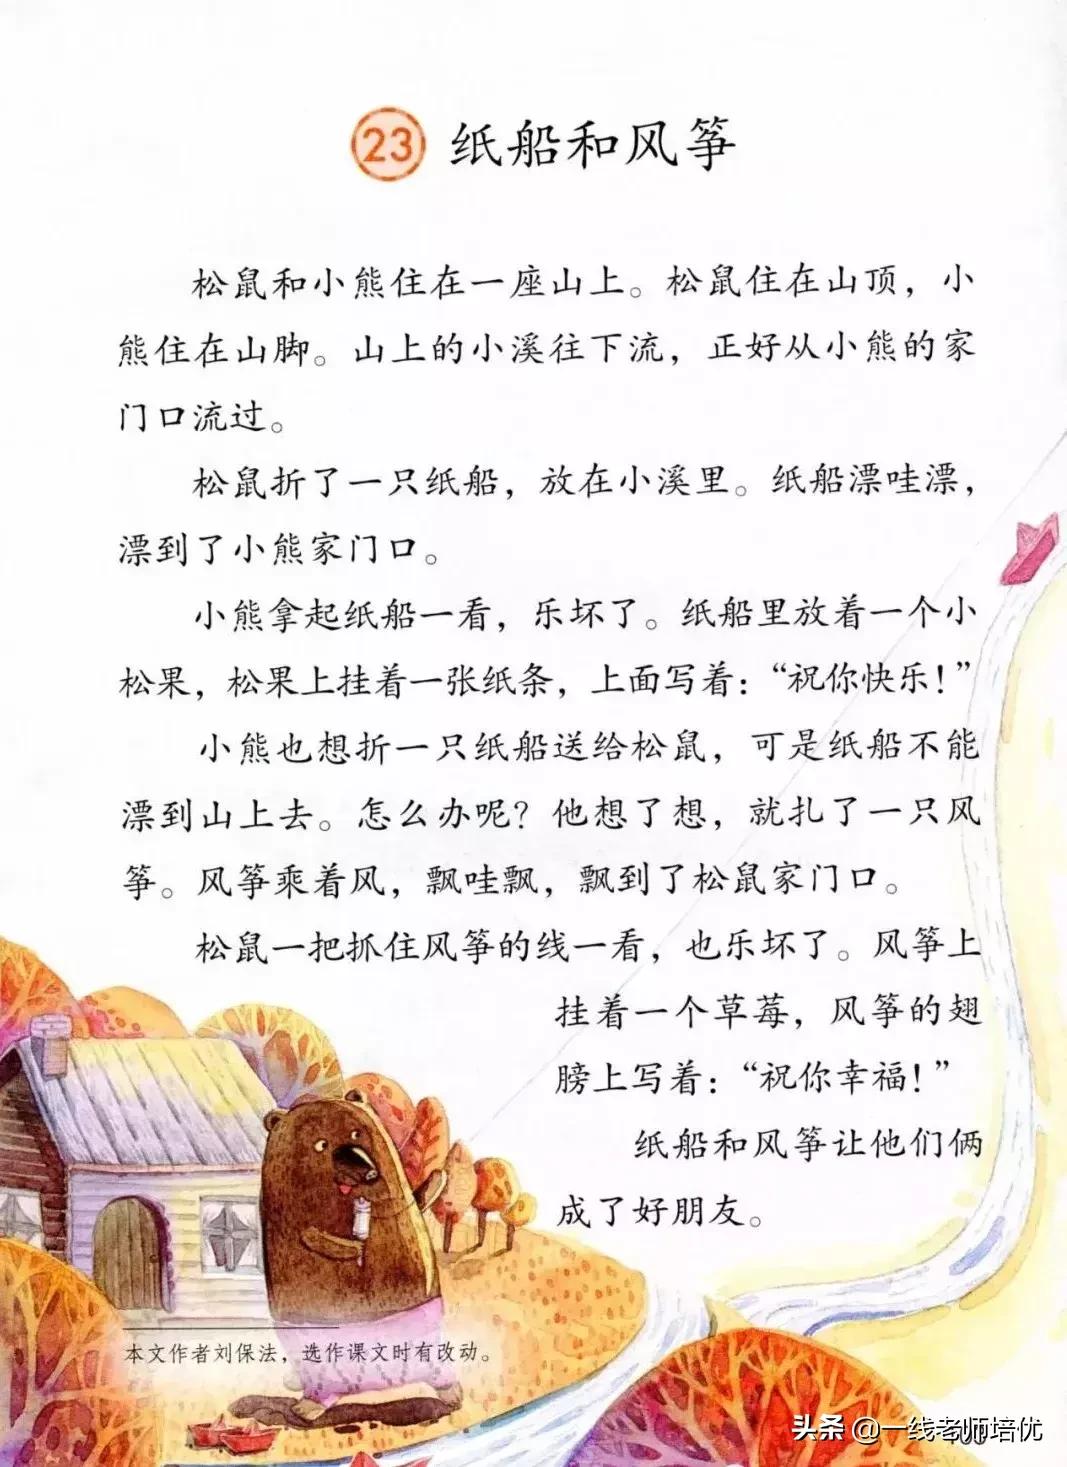 23 纸船和风筝
松鼠和小熊住在一座山上。松鼠住在山顶，小
熊住在山脚。山上的小溪往下流，正好从小熊的家
门口流过。
松鼠折了一只纸船，放在小溪里。纸船漂哇漂，
漂到了小熊家门口。
小熊拿起纸船一看，乐坏了。纸船里放着一个小
松果，松果上挂着一张纸条，上面写着：“祝你快乐！”
小熊也想折一只纸船送给松鼠，可是纸船不能
漂到山上去。怎么办呢？他想了想，就扎了一只风
筝。风筝乘着风，飘哇飘，飘到了松鼠家门口。
松鼠一把抓住风筝的线一看，也乐坏了。风筝上
挂着一个草莓，风筝的翅
膀上写着：“祝你幸福！”
纸船和风筝让他们俩
成了好朋友。
本文作者刘保法，选作课文时有改动。
头条 @一线老师培优